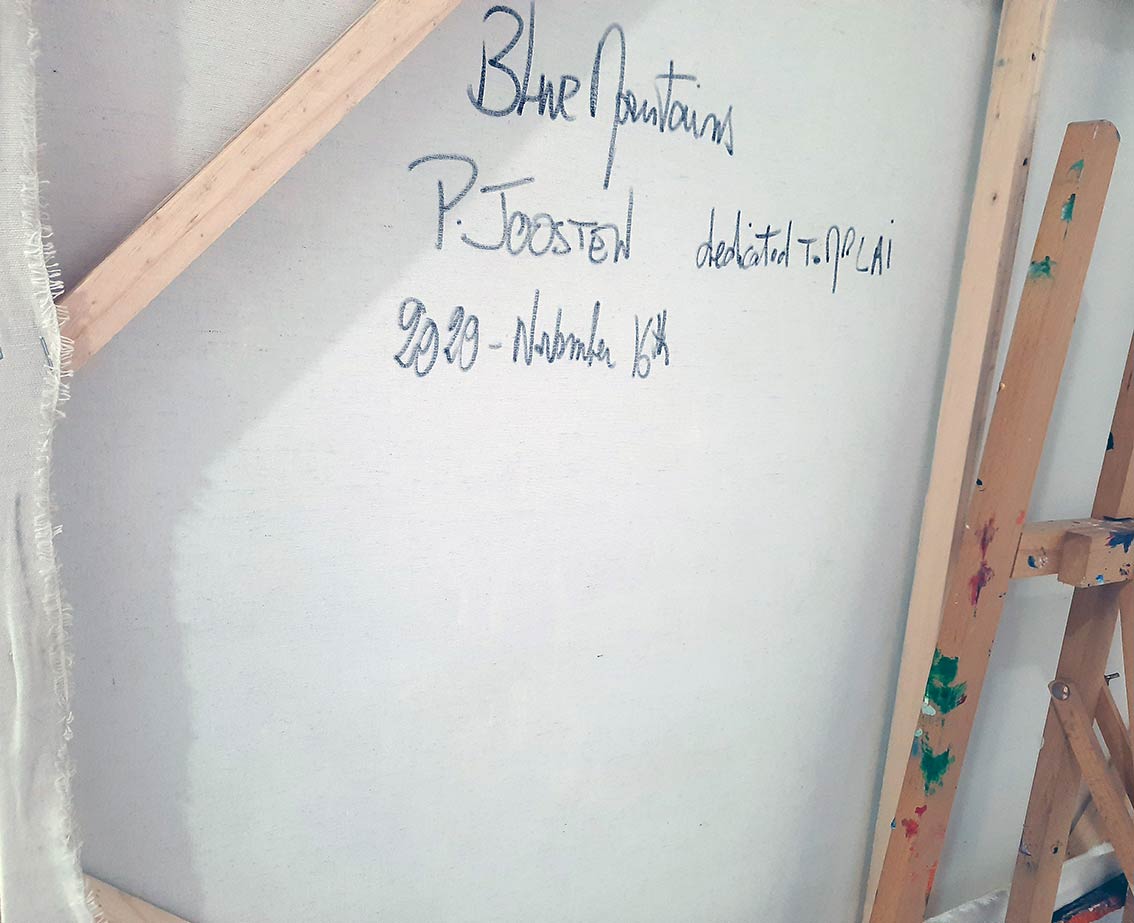 Blue Mountains
P. JOOSTEN dedicated To Mr LAI
2020 - November 16th